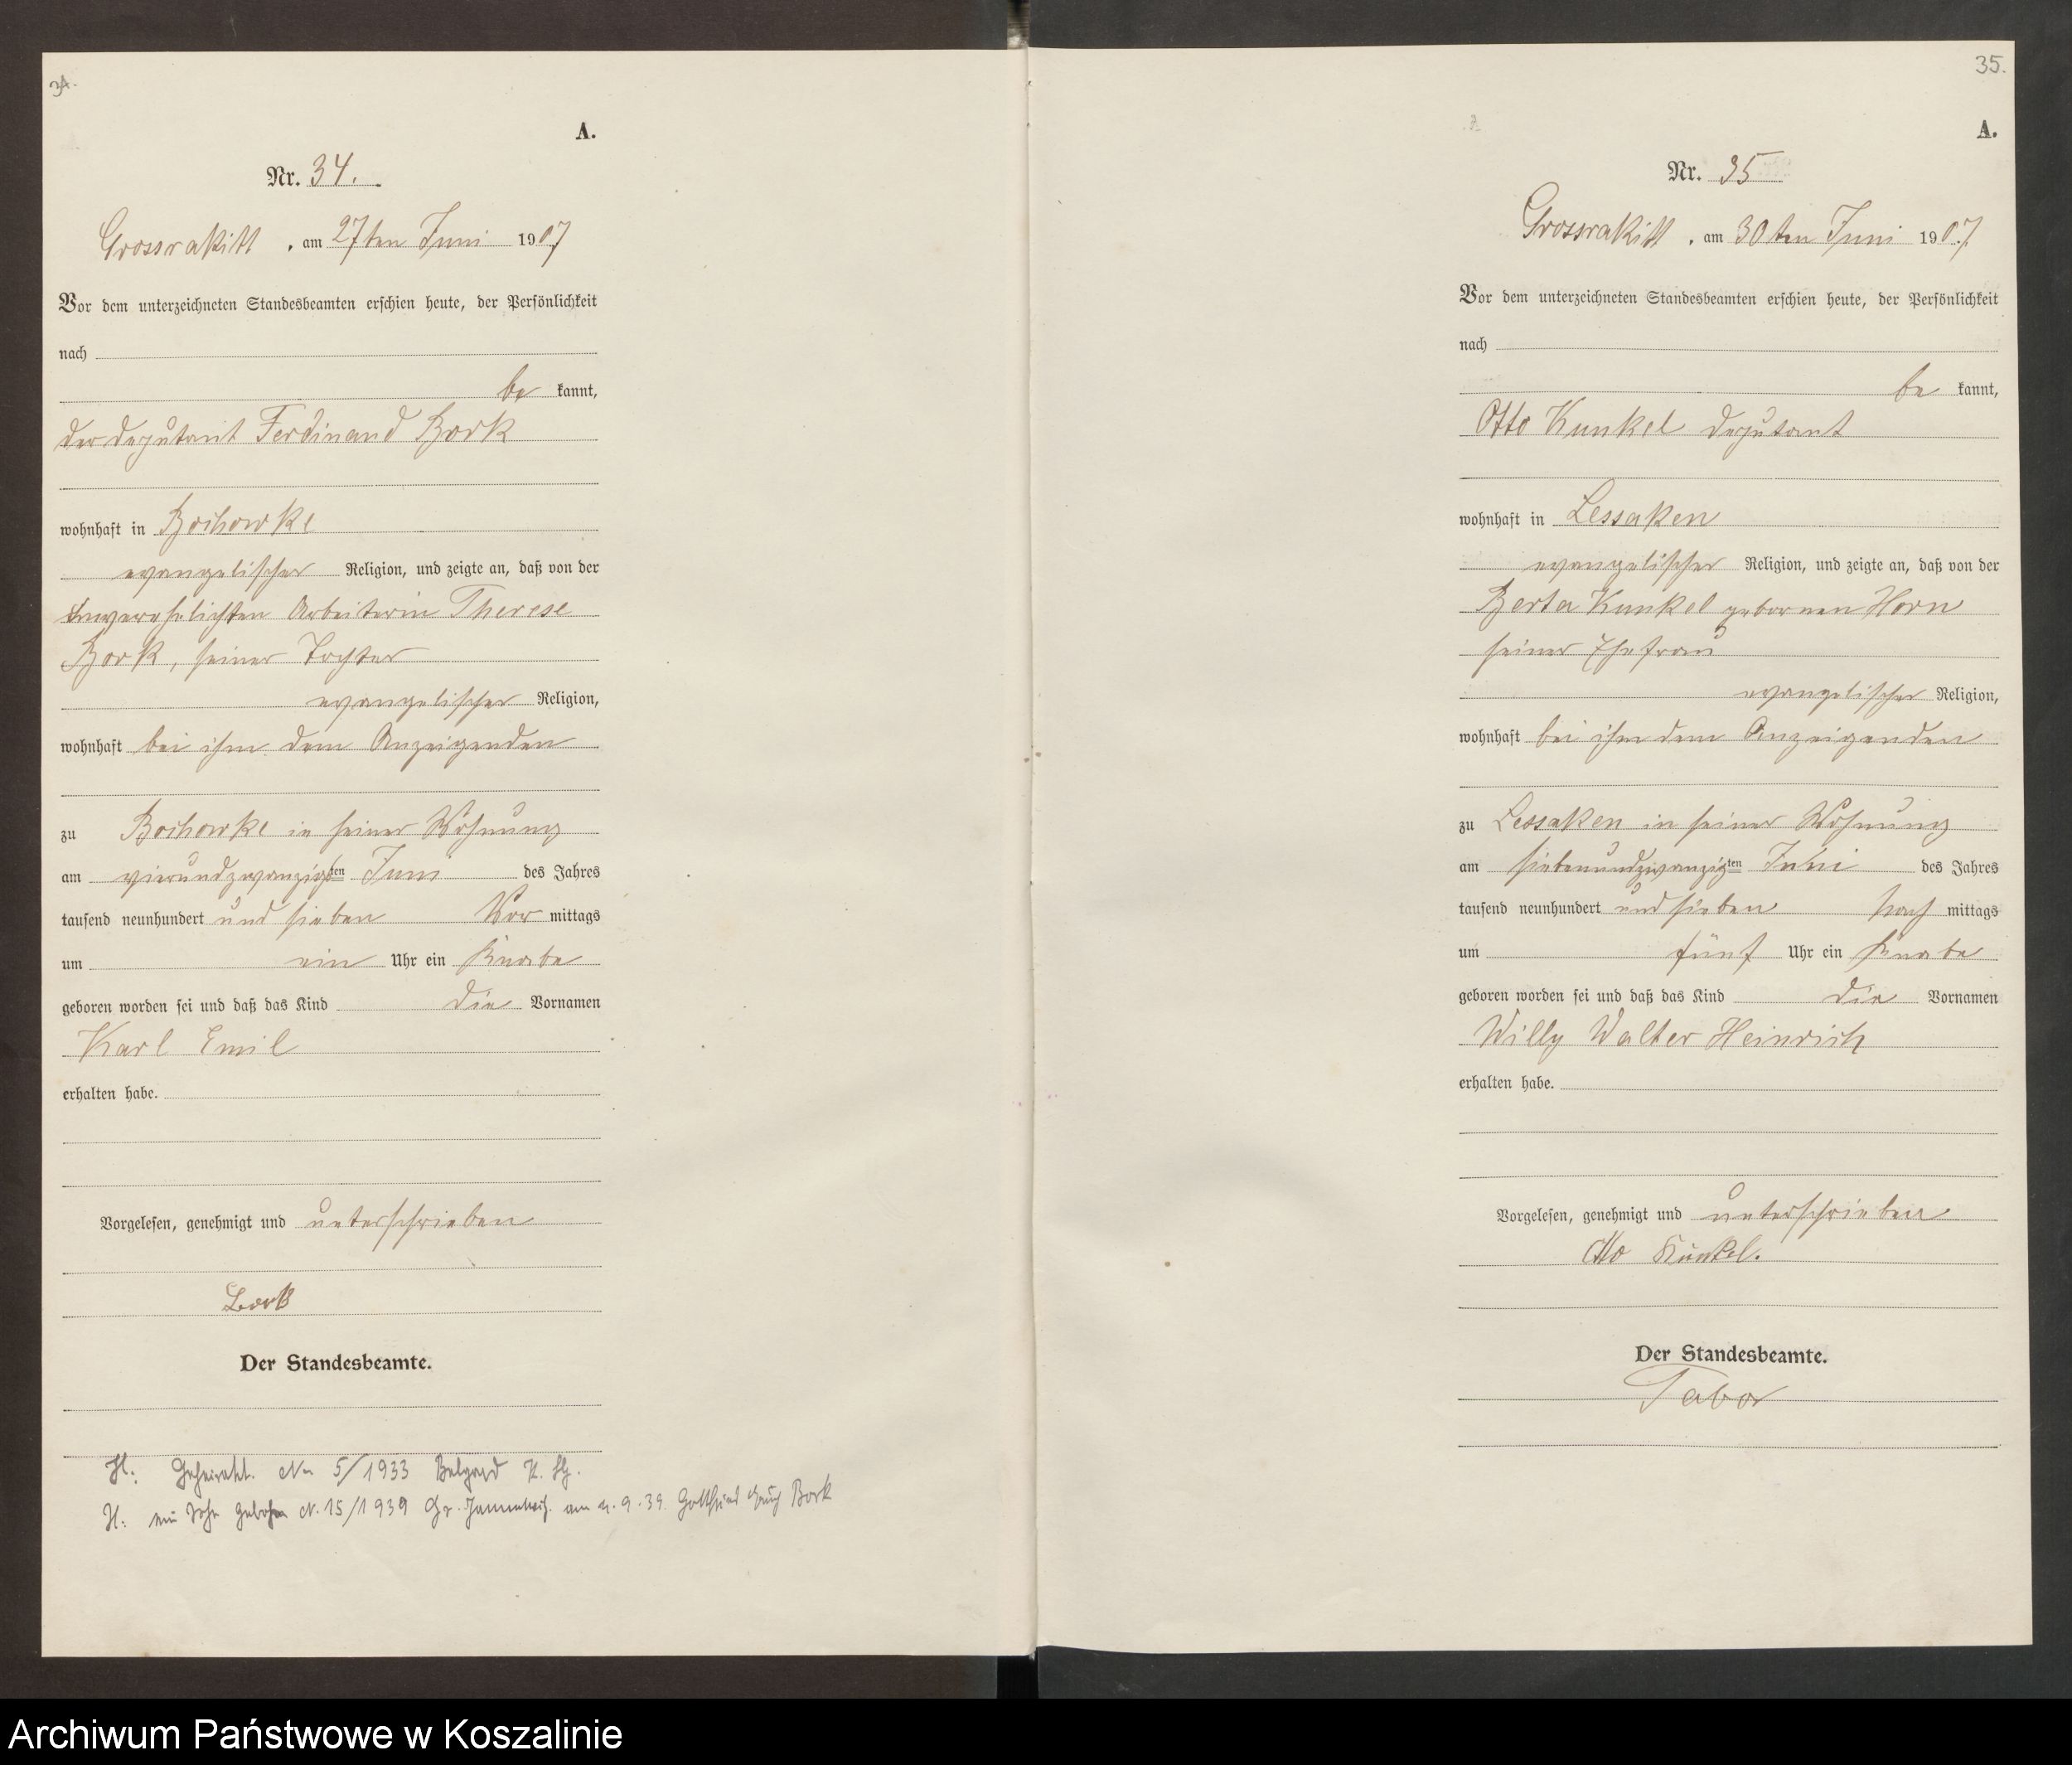 34.
A.
Nr. 34.
Grossrakitt, am 27ten Juni 1907
Vor dem unterzeichneten Standesbeamten erschien heute, der Persönlichkeit
nach
be kannt,
der Deputant Ferdinand Bork
wohnhaft in Bochowke
evangelischer Religion, und zeigte an, daß von der
unverehelichten Arbeiterin Therese
Bork, seiner Tochter
evangelischer Religion,
wohnhaft bei ihm dem Anzeigenden
zu Bochowke in seiner Wohnung
am vierundzwanzigsten Juni des Jahres
tausend neunhundert und sieben Vor mittags
um ein Uhr ein Knabe
geboren worden sei und daß das Kind die Vornamen
Karl Emil
erhalten habe.
Vorgelesen, genehmigt und unterschrieben
Bork
Der Standesbeamte.
H: Geheiratet. Nr 5/1933 Belgard
H: ein Sohn geboren N. 15/1939 Gr. am 4.9.39. Gottfried Bork
35.
A.
Nr. 35
Grossrakitt, am 30ten Juni 1907.
Vor dem unterzeichneten Standesbeamten erschien heute, der Persönlichkeit
nach
be kannt,
Otto Kunkel Deputant
wohnhaft in Lessaken
evangelischer Religion, und zeigte an, daß von der
Berta Kunkel gebornen Horn
seiner Ehefrau
evangelischer Religion,
wohnhaft bei ihm dem Anzeigenden
zu Lessaken in seiner Wohnung
am siebenundzwanzigten Juni des Jahres
tausend neunhundert und sieben Nach mittags
um fünf Uhr ein Knabe
geboren worden sei und daß das Kind die Vornamen
Willy Walter Heinrich
erhalten habe.
Vorgelesen, genehmigt und unterschrieben
Otto Kunkel.
Der Standesbeamte.
Tabor
Archiwum Państwowe w Koszalinie